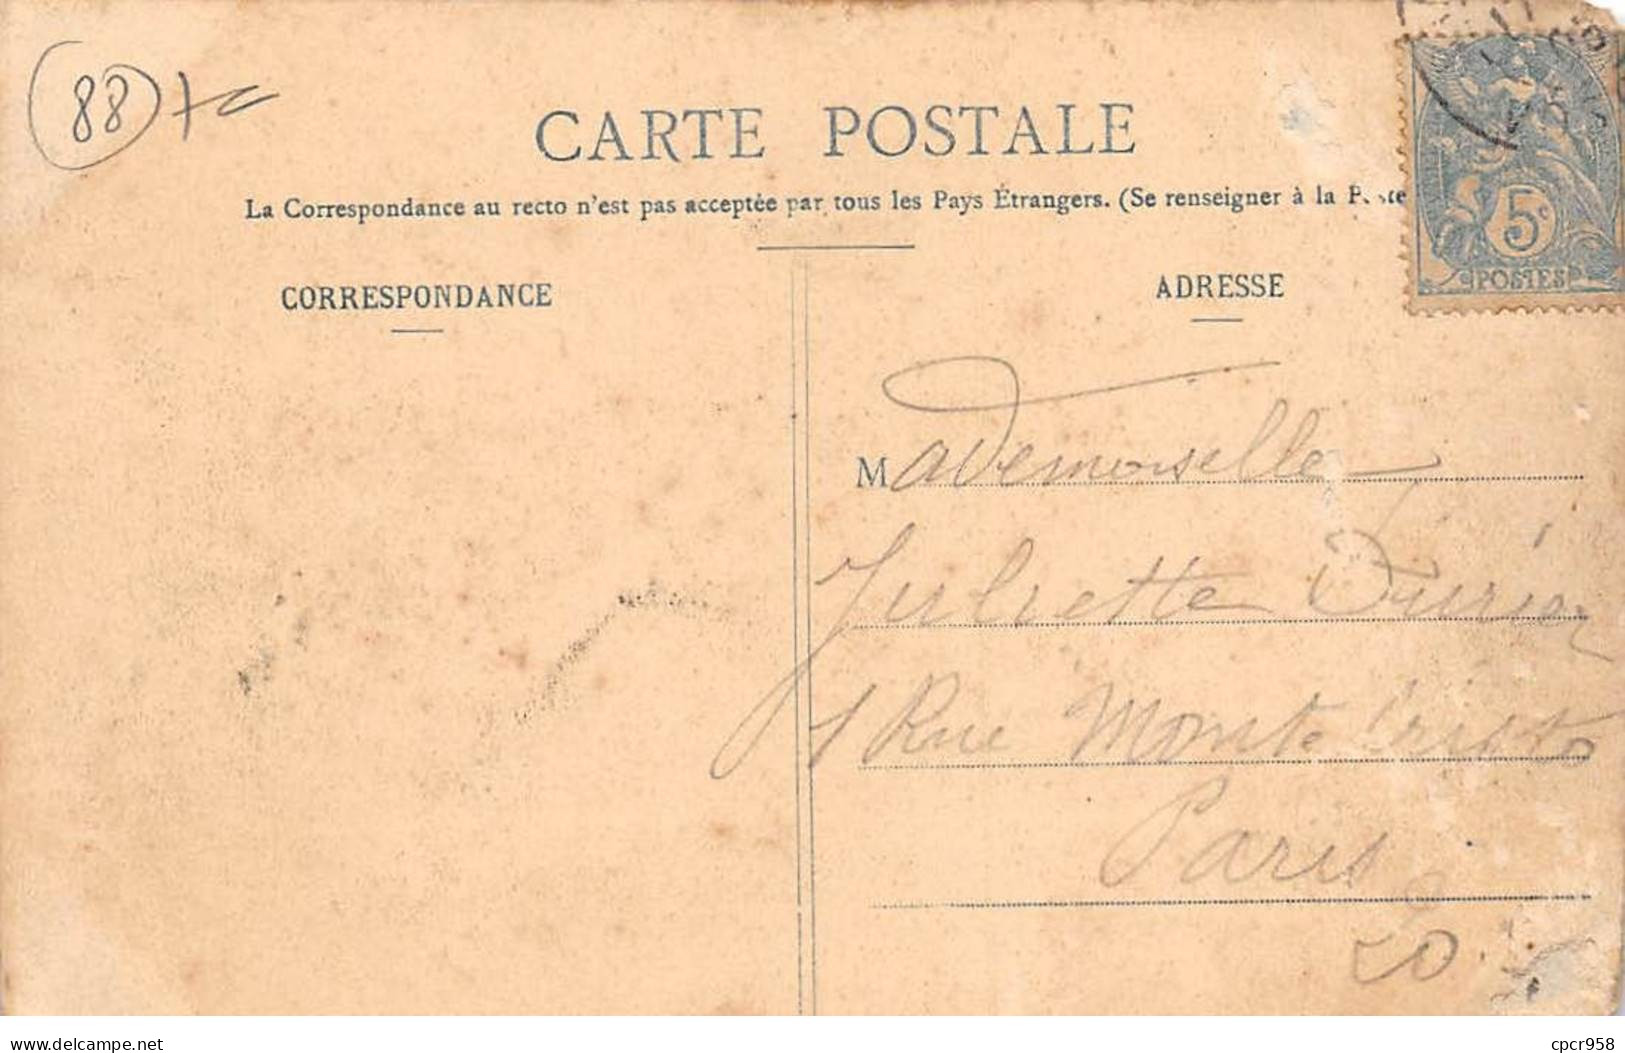 (88)
CARTE POSTALE
La Correspondance au recto n'est pas acceptée par tous les Pays Étrangers. (Se renseigner à la Poste
CORRESPONDANCE
ADRESSE
5c
POSTES
Mademoiselle
Juliette Durier
1 Rue Monte Cristo
Paris
20
delcampe.net
cpcr958